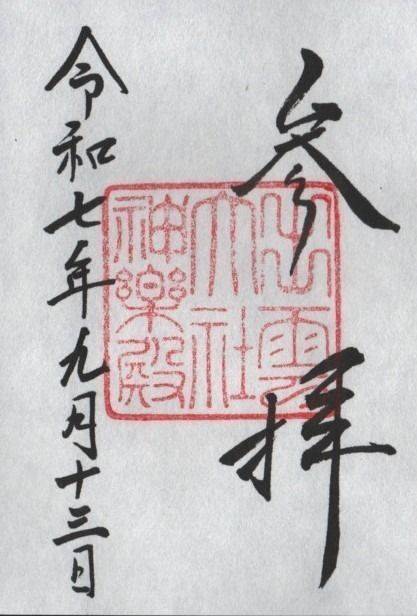 参拝
出雲
大社
神楽殿
令和七年九月十三日